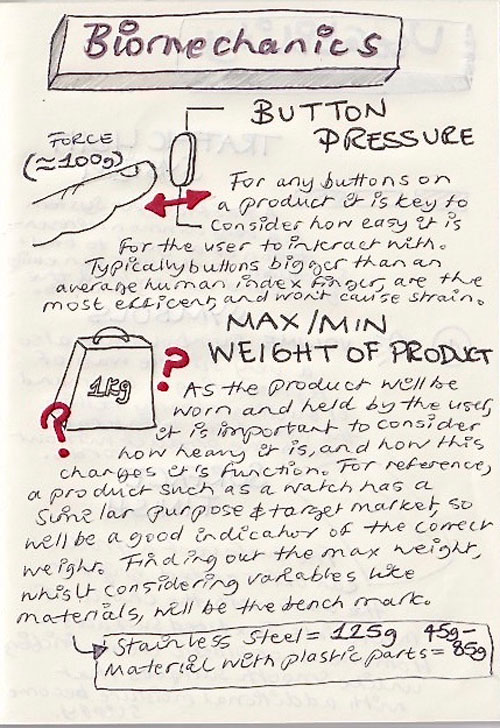 Biomechanics
BUTTON
PRESSURE
FORCE
(≈100g)
For any buttons on
a product it is key to
consider how easy it is
for the user to interact with.
Typically buttons bigger than an
average human index finger, are the
most efficent, and wont cause strain.
MAX/MIN
WEIGHT OF PRODUCT
1Kg
?
?
As the product will be
worn and held by the user,
it is important to consider
how heavy it is, and how this
changes it's function. For reference,
a product such as a watch has a
similar purpose & target market, so
will be a good indicator of the correct
weight. Finding out the max weight,
whislt considering variables like
materials, will be the bench mark.
Stainless Steel = 125g 45g-
Material with plastic parts = 85g